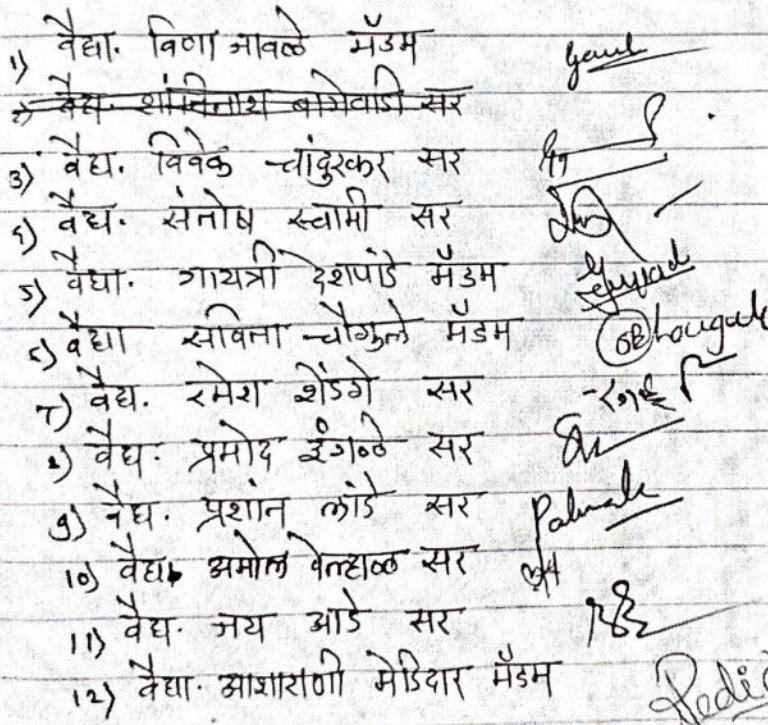 1) वैद्या. विणा जावळे मॅडम
2) वैद्य. शांतिनाथ बागेवाडी सर
3) वैद्य. विवेक चांदुरकर सर
४) वैद्य. संतोष स्वामी सर
5) वैद्या. गायत्री देशपांडे मॅडम
६) वैद्या सविता चौगुले मॅडम
7) वैद्य. रमेश शेंडगे सर
8) वैद्य. प्रमोद इंगळे सर
9) वैद्य. प्रशांत लांडे सर
10) वैद्य. अमोल वेल्हाळ सर
11) वैद्य. जय आडे सर
12) वैद्या. आशाराणी मेडिदार मॅडम